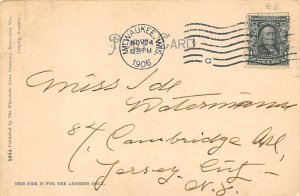 RE
POST CARD
MILWAUKEE, WIS.
NOV 24
12 30 PM
1906
C
Miss Ida
Watermann
84 Cambridge Ave,
Jersey City -
N. J.
THIS SIDE IS FOR THE ADDRESS ONLY.
5644 Published by The Wisconsin News Company, Milwaukee, Wis.
Leipzig, Dresden